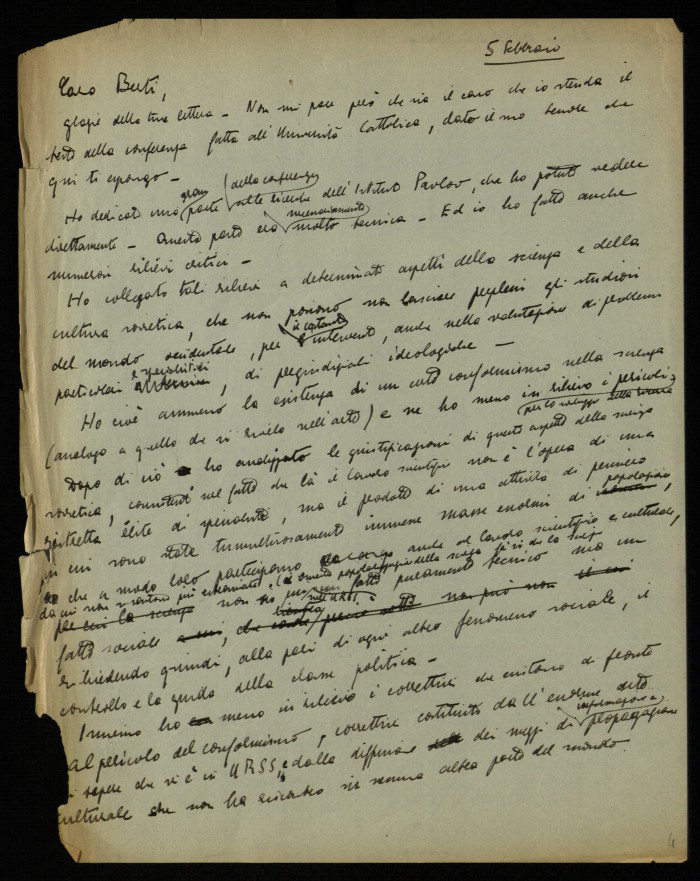 5 febbraio
Caro Berti,
grazie della tua lettera - Non mi pare però che sia il caso che io stenda il
testo della conferenza fatta all'Università Cattolica, dato il suo tenore che
qui ti espongo -
Ho dedicato una gran parte della conferenza alle ricerche dell'Istituto Pavlov, che ho potuto vedere
direttamente - Questa parte era necessariamente molto tecnica - Ed io ho fatto anche
numerosi rilievi critici -
Ho collegato tali rilievi a determinati aspetti della scienza e della
cultura sovietica, che non possono non lasciare perplessi gli studiosi
del mondo occidentale, per il costante intervento, anche nella valutazione di problemi
particolari e specialistici, di pregiudiziali ideologiche -
Ho cioè ammesso la esistenza di un certo conformismo nella scienza
(analogo a quello che si rivela nell'arte) e ne ho messo in rilievo i pericoli
per lo sviluppo della scienza
Dopo di ciò ho analizzato le giustificazioni di questo aspetto della scienza
sovietica, consistenti nel fatto che là il lavoro scientifico non è l'opera di una
ristretta élite di specialisti, ma è prodotto di una attività di pensiero
in cui sono state tumultuosamente immesse masse enormi di popolazione,
che a modo loro partecipano anche al lavoro scientifico e culturale,
da cui non si sentono più estromessi. (a questa popolarizzazione della scienza fa sì che la scienza
nell'URSS non sia più un fatto puramente tecnico ma un
fatto sociale
richiedendo quindi, alla pari di ogni altro fenomeno sociale, il
controllo e la guida della classe politica -
Insieme ho messo in rilievo i correttivi che esistono di fronte
al pericolo del conformismo, correttivi costituiti dall'enorme sete
di sapere che vi è in URSS, e dalla diffusione dei mezzi di informazione e propagazione
culturale che non ha riscontro in nessuna altra parte del mondo.
4